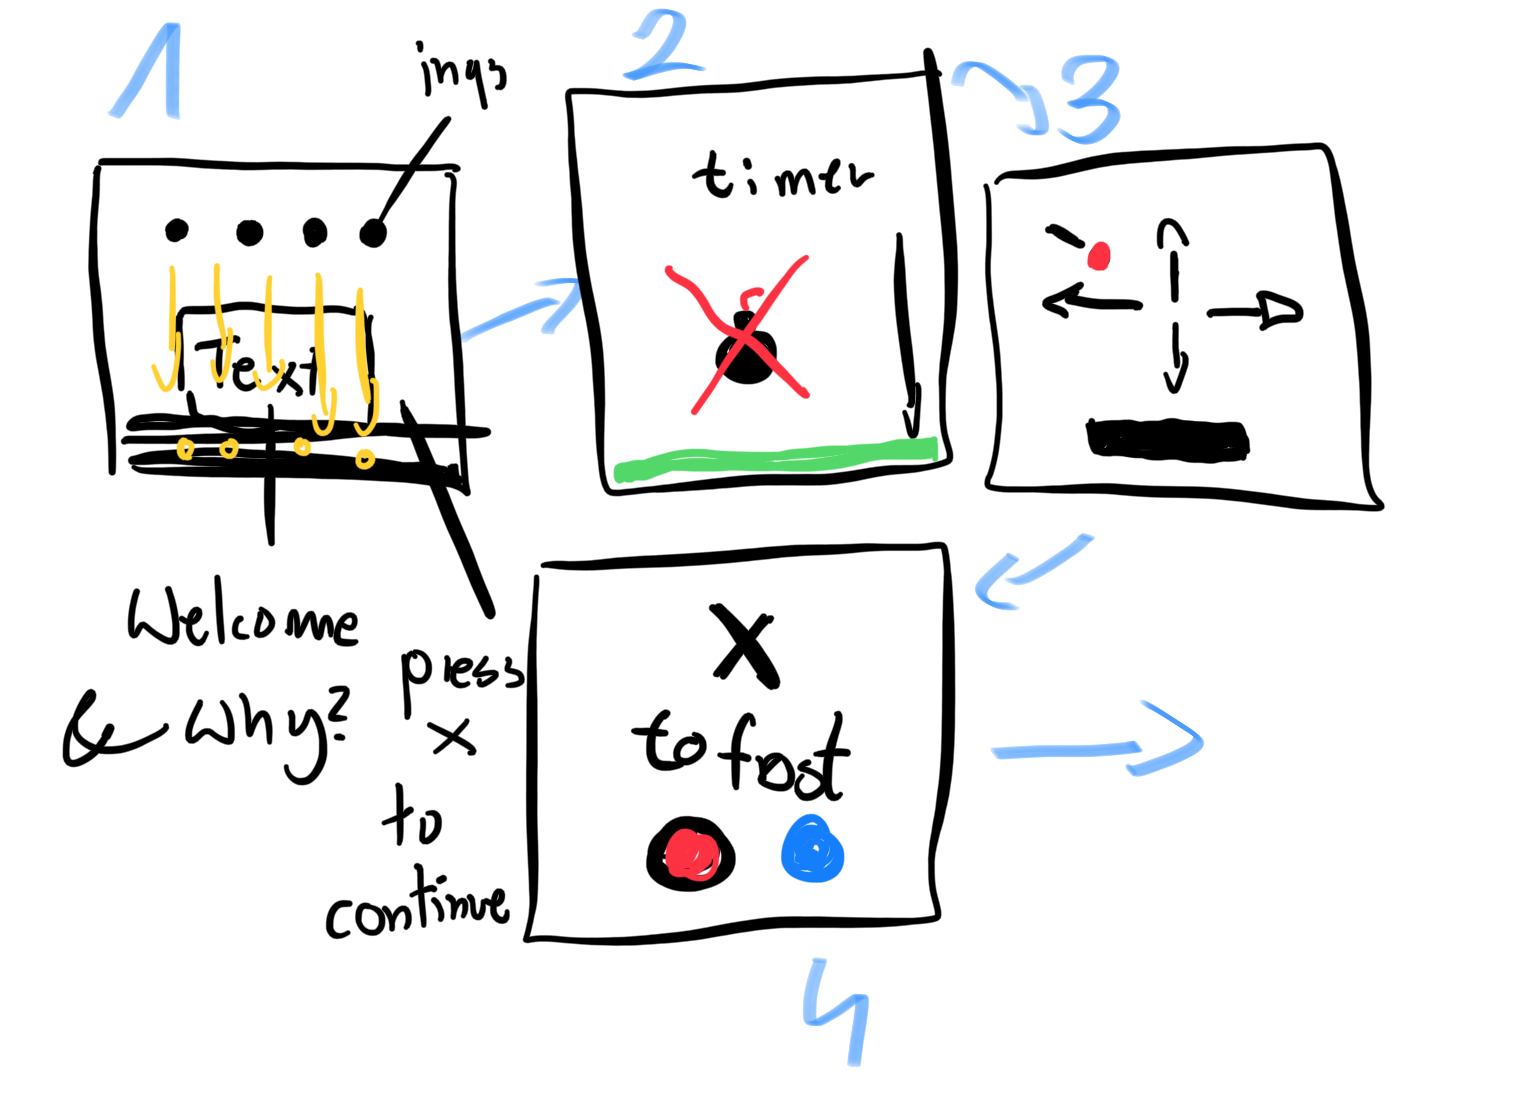 1
ings
Text
Welcome
& Why?
press
x
to
continue
2
timer
3
X
to frost
4